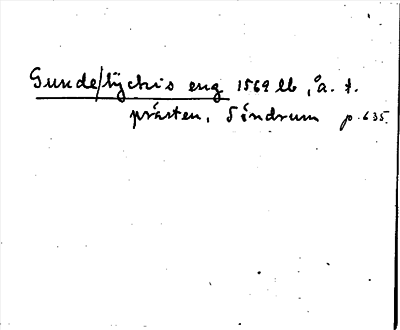 Gunde/lyckis eng 1569 lb, å. t.
prästen, Söndrum p. 635.